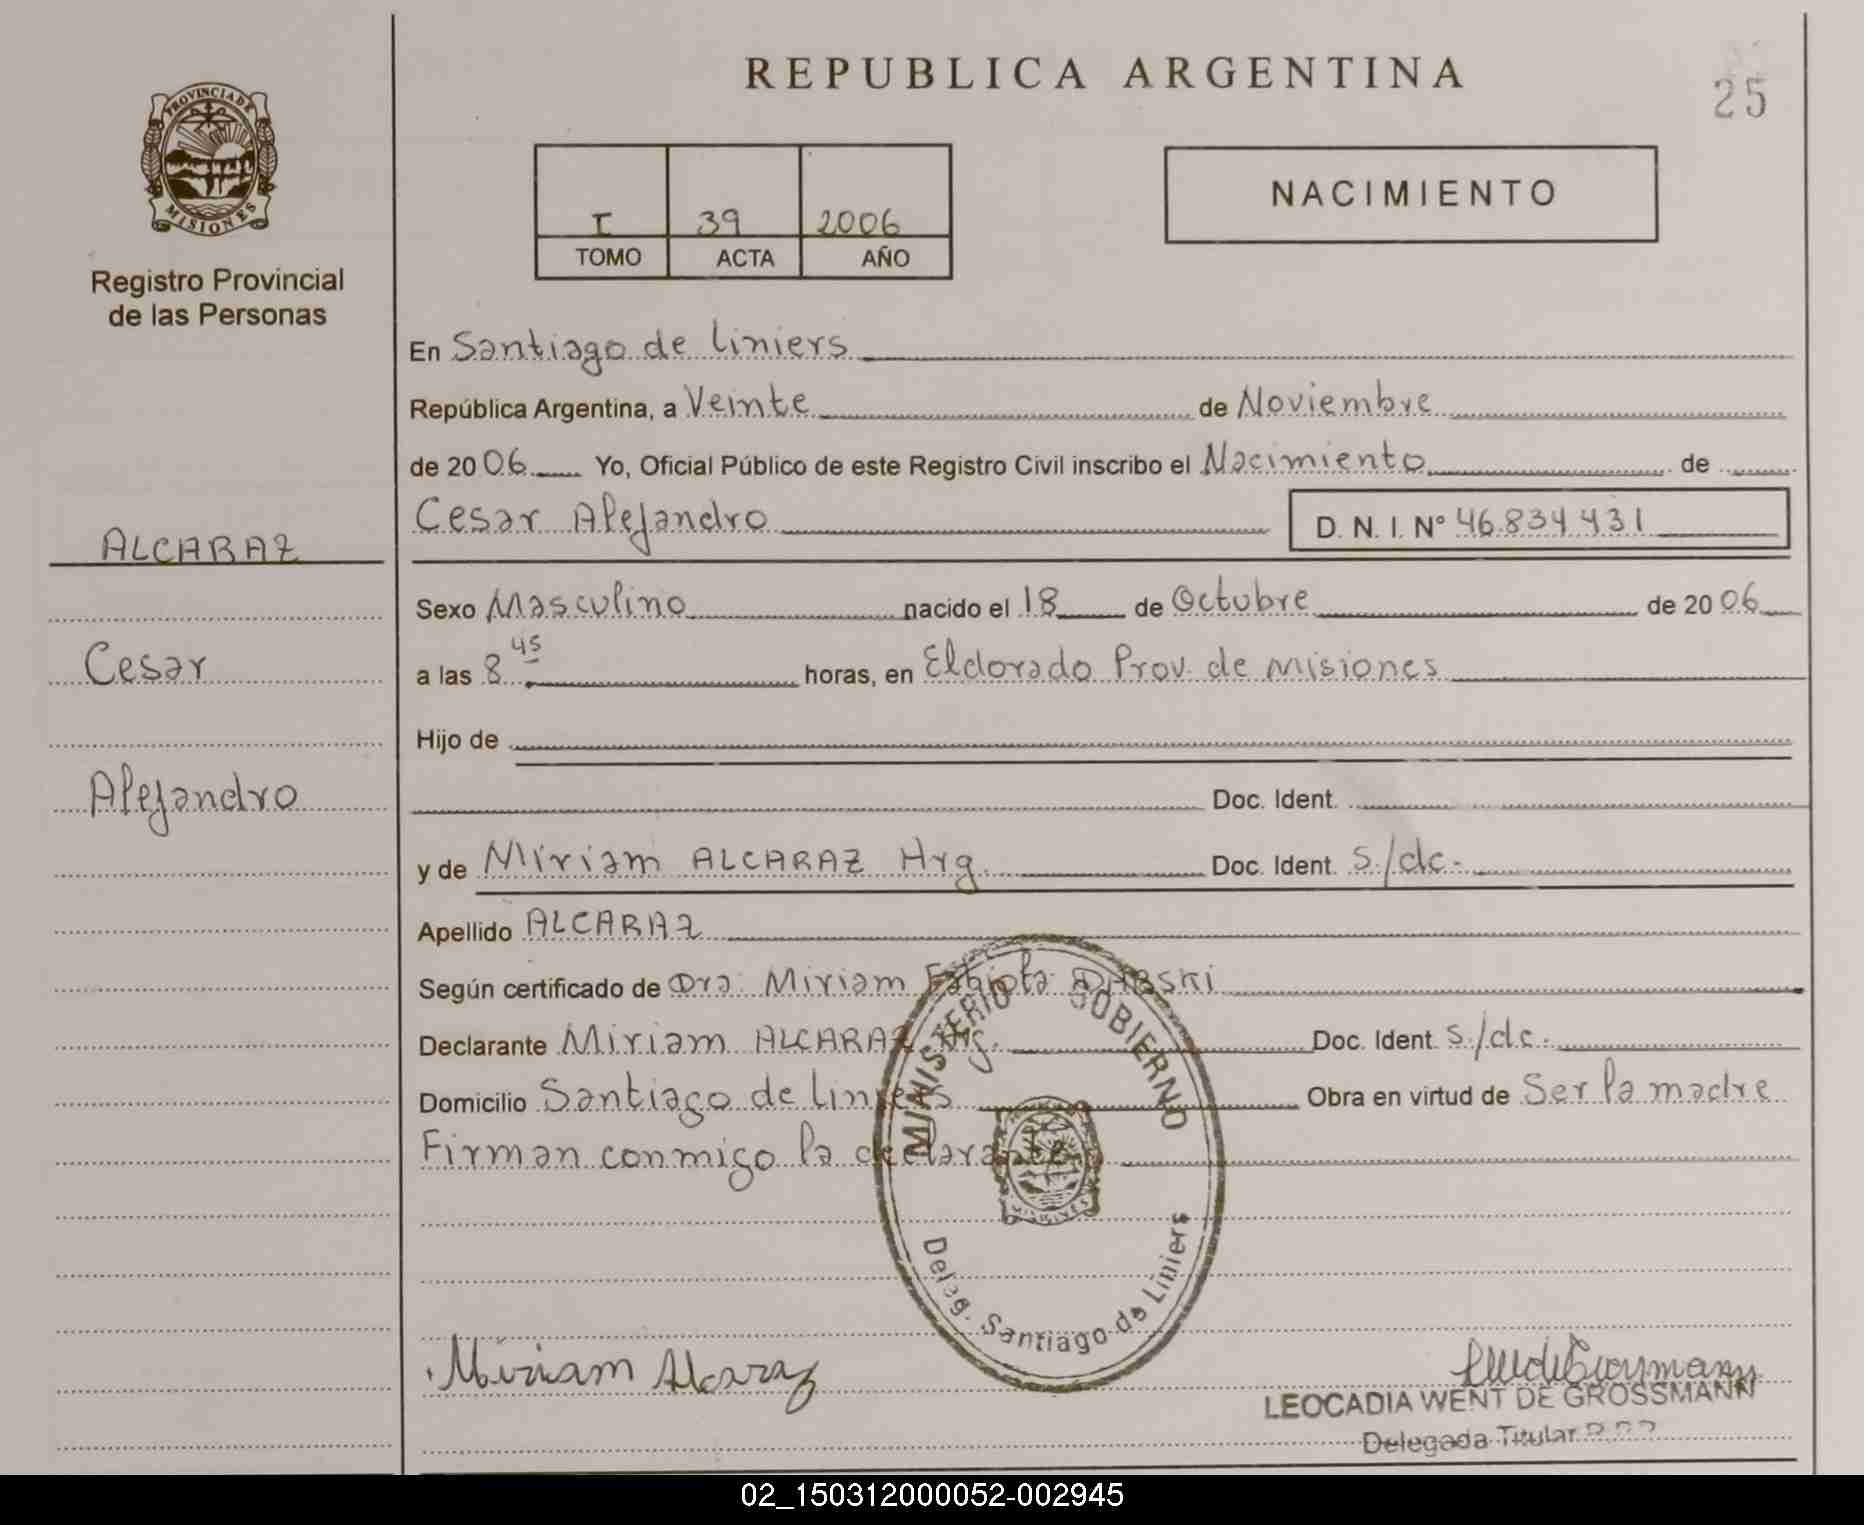 REPUBLICA ARGENTINA
25
PROVINCIA DE
MISIONES
Registro Provincial
de las Personas
I 39 2006
TOMO ACTA AÑO
NACIMIENTO
En Santiago de Liniers
República Argentina, a Veinte de Noviembre
de 2006 Yo, Oficial Público de este Registro Civil inscribo el Nacimiento de
Cesar Alejandro D. N. I. Nº 46.834.431
ALCARAZ
Cesar
Alejandro
Sexo Masculino nacido el 18 de Octubre de 2006
a las 8 45 horas, en Eldorado Prov. de Misiones
Hijo de
Doc. Ident.
y de Miriam ALCARAZ Arg. Doc. Ident. s./dc.
Apellido ALCARAZ
Según certificado de Dra. Miriam Fabiola
Declarante Miriam ALCARAZ Arg. Doc. Ident. s./dc.
Domicilio Santiago de Liniers Obra en virtud de Ser la madre
Firman conmigo la declarante
MINISTERIO GOBIERNO
MISIONES
Deleg. Santiago de Liniers
Miriam Alcaraz
LEOCADIA WENT DE GROSSMANN
Delegada Titular
02_150312000052-002945